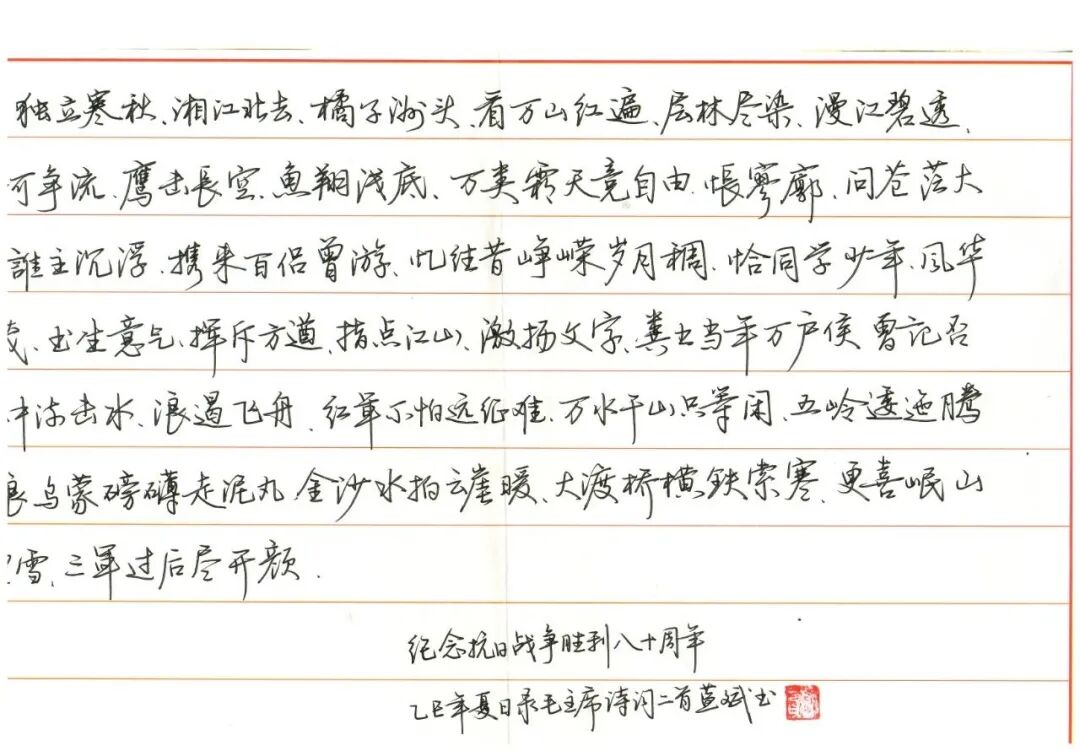 独立寒秋、湘江北去、橘子洲头、看万山红遍、层林尽染、漫江碧透、
争流、鹰击長空、鱼翔浅底、万类霜天竞自由、悵寥廓、问苍茫大
誰主沉浮、携来百侣曾游、忆往昔峥嵘岁月稠、恰同学少年、风华
茂、书生意气、挥斥方遒、指点江山、激扬文字、粪土当年万户侯 曾记否
流击水、浪遏飞舟、红军不怕远征难、万水千山只等闲、五岭逶迤腾
浪乌蒙磅礴走泥丸、金沙水拍云崖暖、大渡桥横铁索寒、更喜岷山
雪、三军过后尽开颜.
纪念抗日战争胜利八十周年
乙巳年夏日录毛主席诗词二首蓝斌书